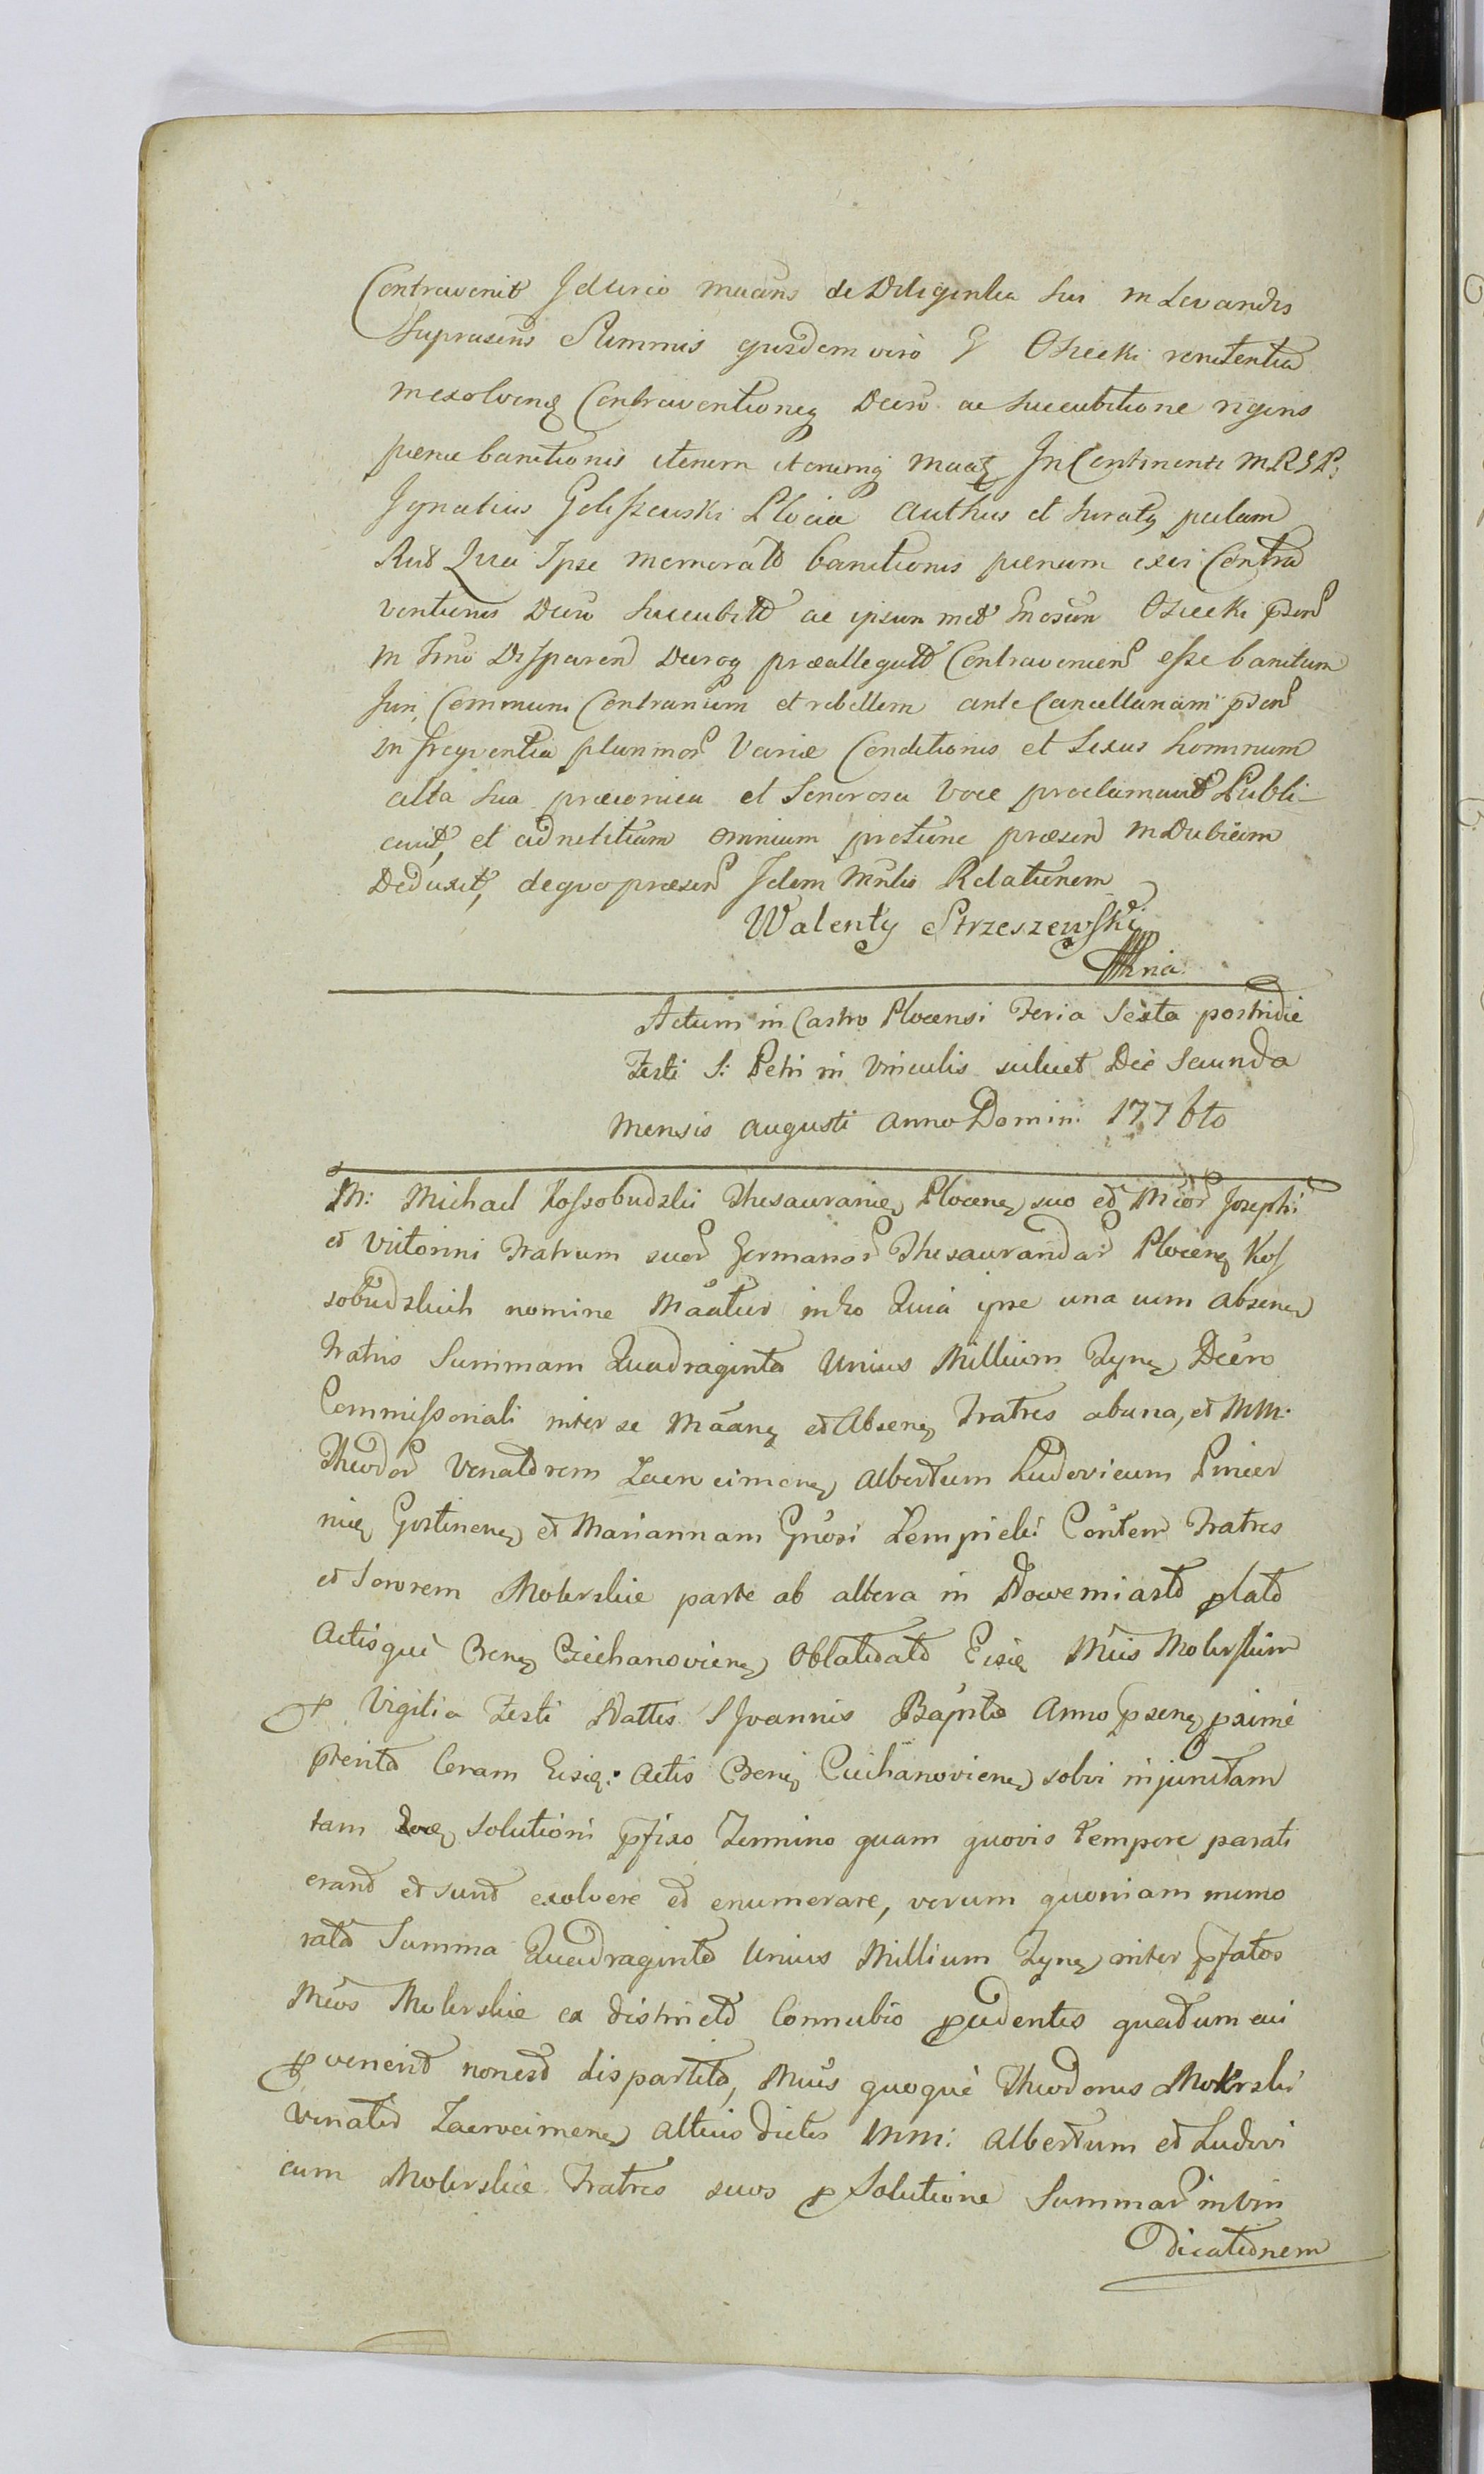 Contravenit Idcirco maans de Diligentia sui in Levandis
suprascns Summis ejusdem vero G Osiecki renitentia
in exolvenq Contraventioneq Decro ac succubitione rigoris
penae banitionis iterum iterumq maatq In Continenti MRGP:
Ignatius Goliszewski Plocia Authus et Juratq palam
Rnt Quia Ipse memorato banitionis paenam exei Contra
ventionis Decro succubito ac ipsum met Gnosum Osiecki psen
in Tmo Disparen Decroq praeallegato Contravenien esse banitum
Juri Communi Contrarium et rebellem ante Cancellariam psen
in frequentia plurimor Variae Conditionis et Sexus hominum
alta sua praeconica et Sonorosa Voce proclamavit Publi-
cavit, et ad notitiam omnium protunc praesen indubiam
Deduxit, de quo praesen Idem Mnlis Relationem
Walenty Strzeszewski
mria
Actum in Castro Plocensi Feria Sexta postridie
Festi S: Petri in Vinculis scilicet Die Secunda
Mensis augusti anno Domini 1776to
M: Michael Kossobudzki Thesaurarieq Plocenq suo et Mcor Josephi
et Victorini Fratrum suor Germanor Thesaurandar Plocenq Kos
sobudzkich nomine Maatur in ho Quia ipse una cum absenq
Fratris Summam Quadraginta Unius Millium Fpnq Decro
Commissoriali inter se Maanq et Absenq Fratres ab una, et MM:
Theodor Venatorem Zacrocimenq Albertum Ludovicum Pincer
nieq Gostinenq et Mariannam Gnosi Lempicki Contem Fratres
et Sororem Mokrskie parte ab altera in Nowemiasto plato
Actisque Crenq Ciechanovienq Oblatato Eisdq Mcis Mokrskim
p Vigilia Festi Nattis S Joannis Bapta Anno psenq proxime
pterito Coram Eisdq: Actis Crenq Ciechanovienq solvi injunctam
tam solutioni pfixo Termino quam quovis tempore parati
erant et sunt exolvere et enumerare, verum quoniam memo
rata Summa Quadraginta Unius Millium Fpnq inter pfatos
Mcos Mokrskie ex districto Connubio pcedentes quatum cui
pvenerit non est dispartita, Mcus quoque Theodorus Mokrski
Venator Zacrocimenq altius dictus MM: Albertum et Ludovi
cum Mokrskie Fratres suos p Solutione Summar in Vin
dicationem